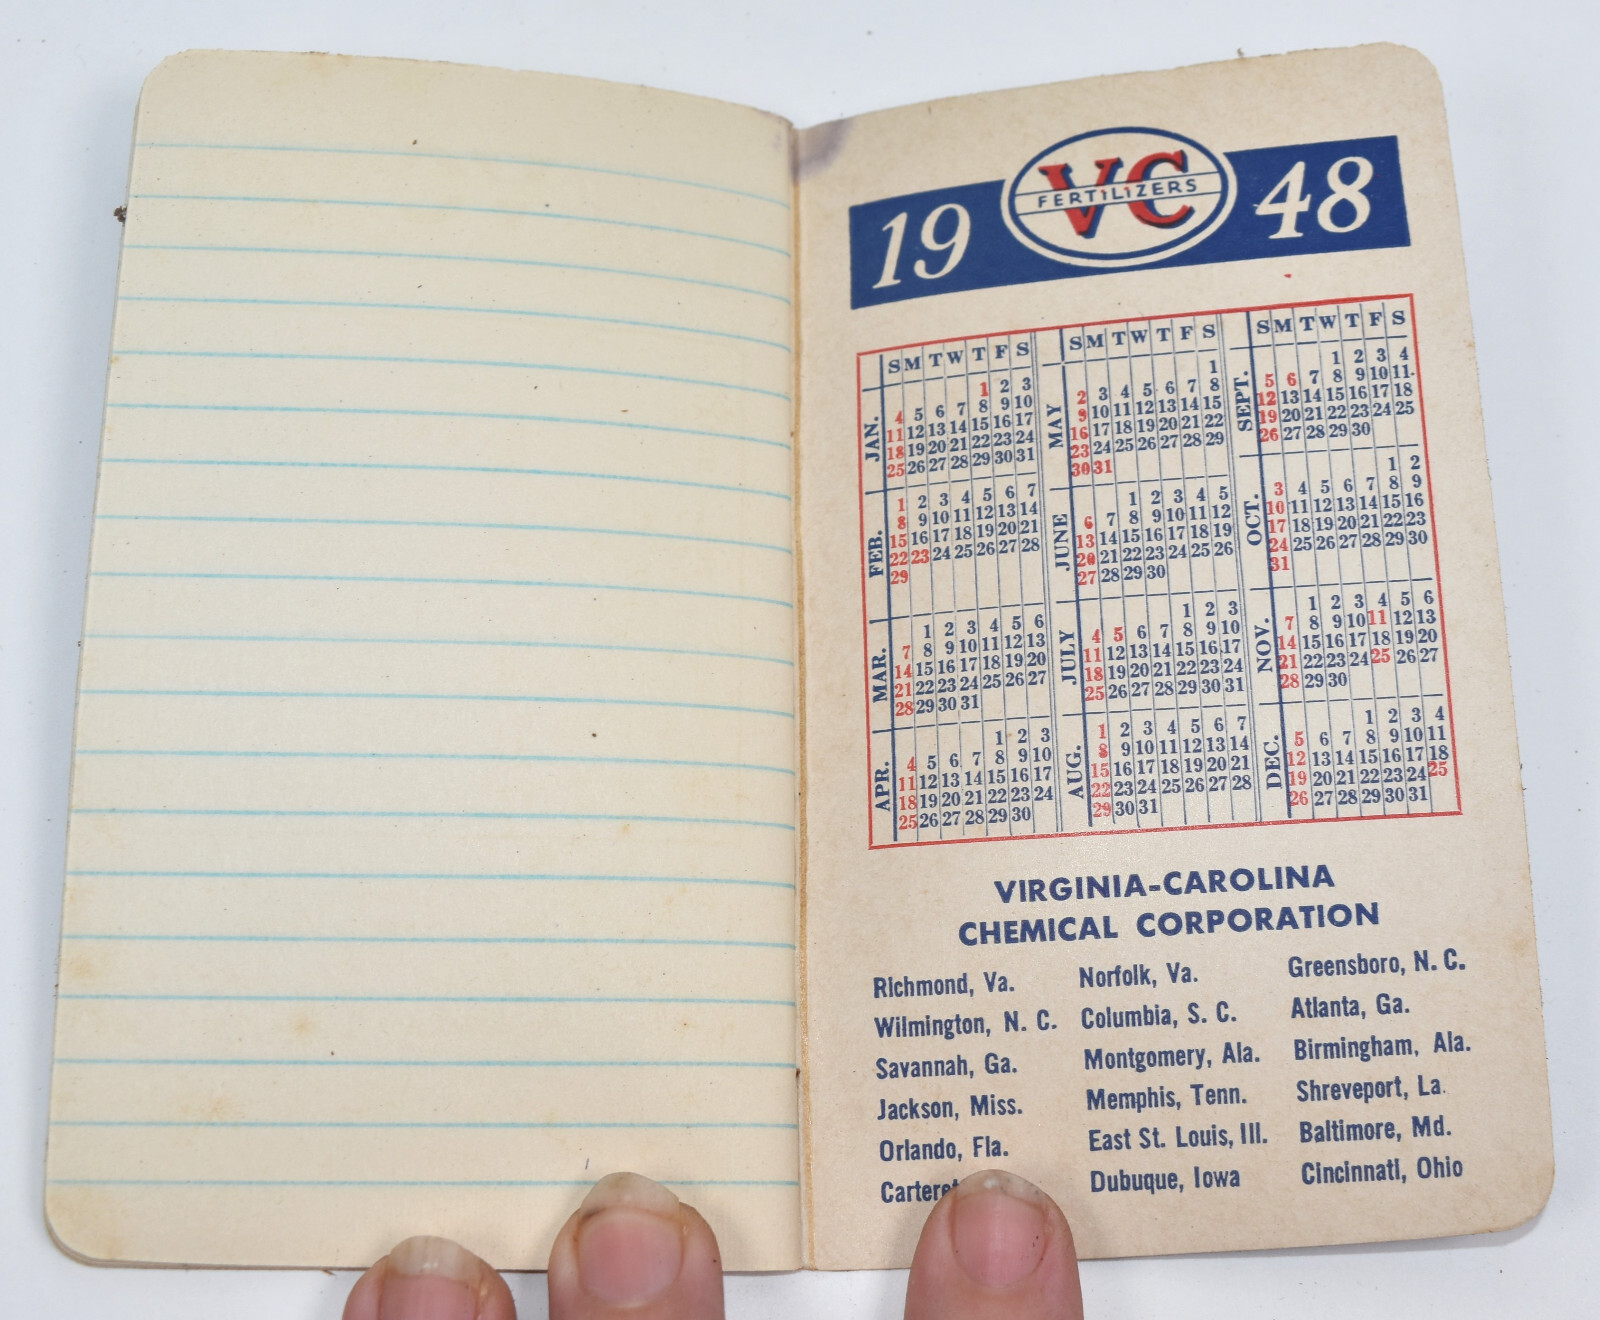 19 VC FERTILIZERS 48
S M T W T F S
JAN.
1 2 3
4 5 6 7 8 9 10
11 12 13 14 15 16 17
18 19 20 21 22 23 24
25 26 27 28 29 30 31
FEB.
1 2 3 4 5 6 7
8 9 10 11 12 13 14
15 16 17 18 19 20 21
22 23 24 25 26 27 28
29
MAR.
1 2 3 4 5 6
7 8 9 10 11 12 13
14 15 16 17 18 19 20
21 22 23 24 25 26 27
28 29 30 31
APR.
1 2 3
4 5 6 7 8 9 10
11 12 13 14 15 16 17
18 19 20 21 22 23 24
25 26 27 28 29 30
S M T W T F S
MAY
1
2 3 4 5 6 7 8
9 10 11 12 13 14 15
16 17 18 19 20 21 22
23 24 25 26 27 28 29
30 31
JUNE
1 2 3 4 5
6 7 8 9 10 11 12
13 14 15 16 17 18 19
20 21 22 23 24 25 26
27 28 29 30
JULY
1 2 3
4 5 6 7 8 9 10
11 12 13 14 15 16 17
18 19 20 21 22 23 24
25 26 27 28 29 30 31
AUG.
1 2 3 4 5 6 7
8 9 10 11 12 13 14
15 16 17 18 19 20 21
22 23 24 25 26 27 28
29 30 31
S M T W T F S
SEPT.
1 2 3 4
5 6 7 8 9 10 11
12 13 14 15 16 17 18
19 20 21 22 23 24 25
26 27 28 29 30
OCT.
1 2
3 4 5 6 7 8 9
10 11 12 13 14 15 16
17 18 19 20 21 22 23
24 25 26 27 28 29 30
31
NOV.
1 2 3 4 5 6
7 8 9 10 11 12 13
14 15 16 17 18 19 20
21 22 23 24 25 26 27
28 29 30
DEC.
1 2 3 4
5 6 7 8 9 10 11
12 13 14 15 16 17 18
19 20 21 22 23 24 25
26 27 28 29 30 31
VIRGINIA-CAROLINA
CHEMICAL CORPORATION
Richmond, Va. Norfolk, Va. Greensboro, N. C.
Wilmington, N. C. Columbia, S. C. Atlanta, Ga.
Savannah, Ga. Montgomery, Ala. Birmingham, Ala.
Jackson, Miss. Memphis, Tenn. Shreveport, La.
Orlando, Fla. East St. Louis, Ill. Baltimore, Md.
Carteret Dubuque, Iowa Cincinnati, Ohio